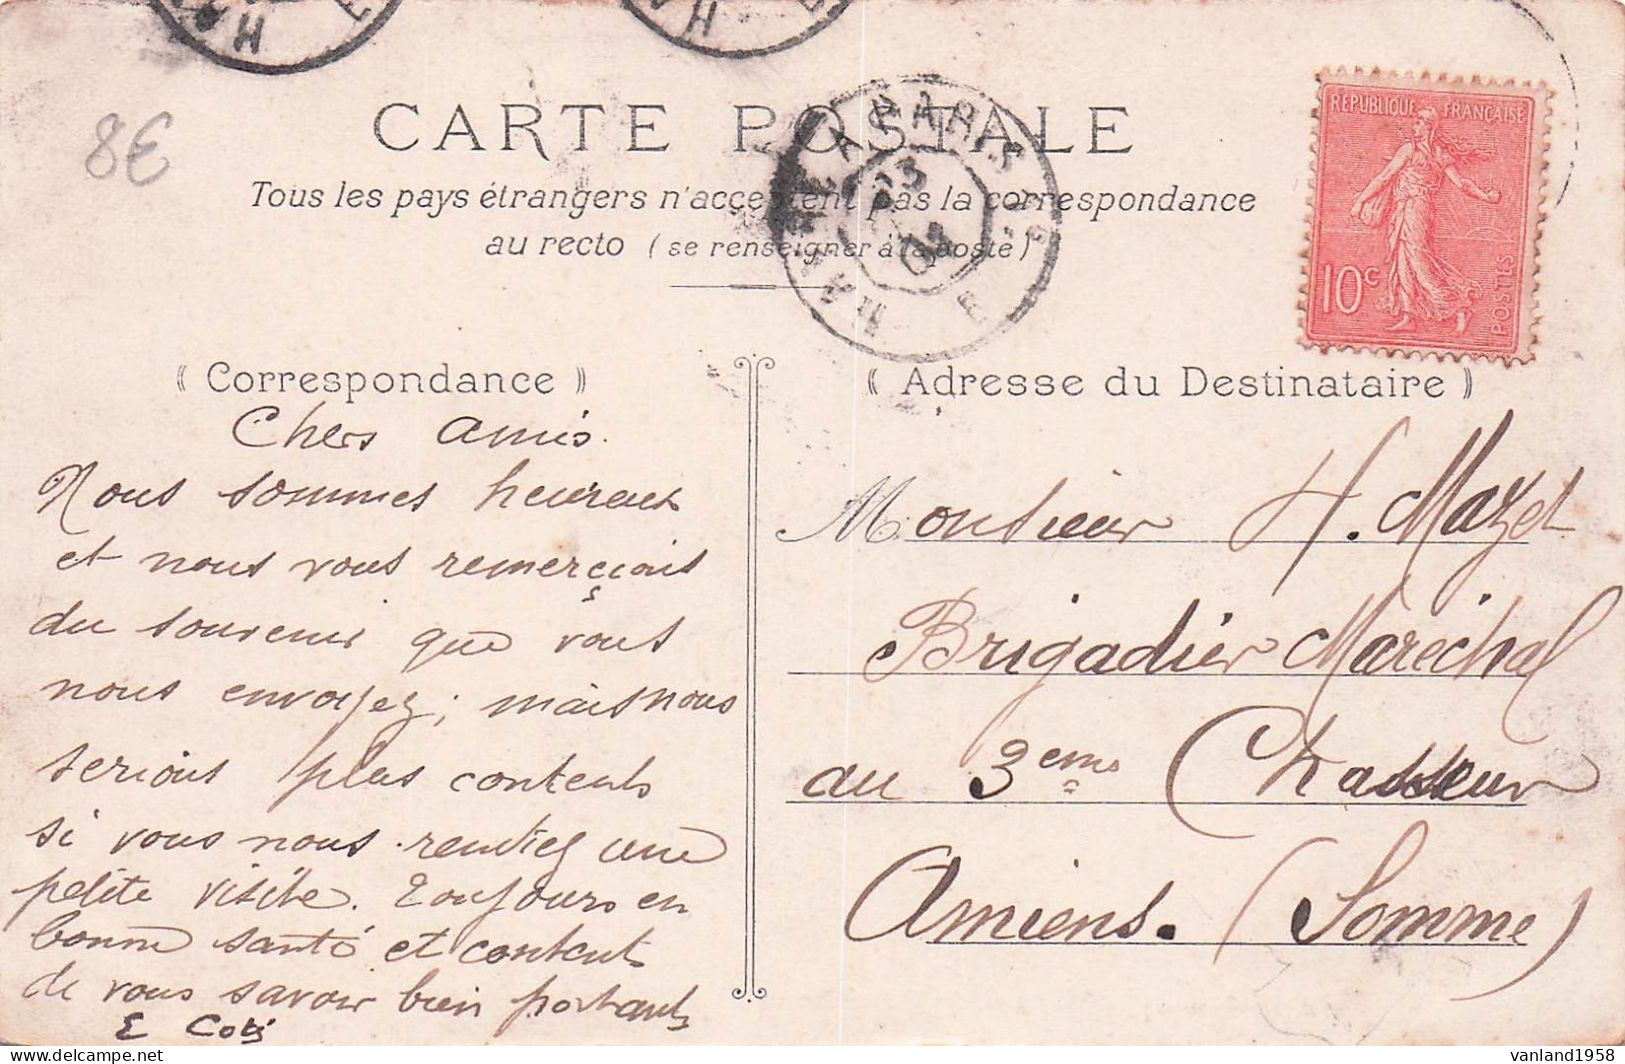 8€
CARTE POSTALE
Tous les pays étrangers n'acceptent pas la correspondance
au recto (se renseigner à la poste)
RÉPUBLIQUE FRANÇAISE
10c
POSTES
PARIS
(Correspondance)
Chers amis.
Nous sommes heureux
et nous vous remerçions
du souvenir que vous
nous envoyez; mais nous
serions plus contents
si vous nous rendiez une
petite visite. Toujours en
bonne santé et contents
de vous savoir bien portants
E
(Adresse du Destinataire)
Monsieur H. Mazet
Brigadier Maréchal
au 3eme Chasseur
Amiens. (Somme)
vanland1958